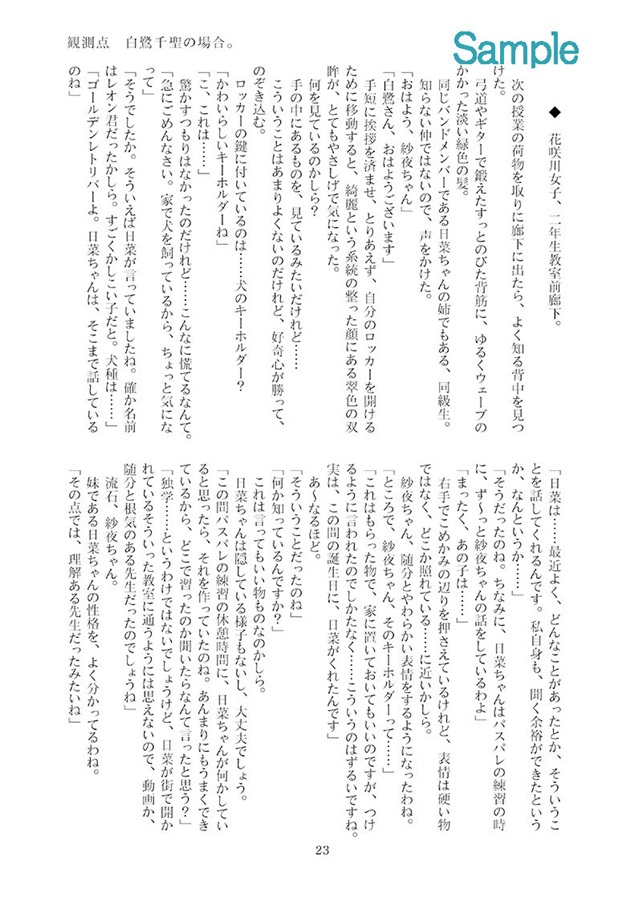 観測点　白鷺千聖の場合。
Sample
◆　花咲川女子、二年生教室前廊下。
次の授業の荷物を取りに廊下に出たら、よく知る背中を見つ
けた。
弓道やギターで鍛えたすっとのびた背筋に、ゆるくウェーブの
かかった淡い緑色の髪。
同じバンドメンバーである日菜ちゃんの姉でもある、同級生。
知らない仲ではないので、声をかけた。
「おはよう、紗夜ちゃん」
「白鷺さん、おはようございます」
手短に挨拶を済ませ、とりあえず、自分のロッカーを開ける
ために移動すると、綺麗という系統の整った顔にある翠色の双
眸が、とてもやさしげで気になった。
何を見ているのかしら？
手の中にあるものを、見ているみたいだけれど……
こういうことはあまりよくないのだけれど、好奇心が勝って、
のぞき込む。
ロッカーの鍵に付いているのは……犬のキーホルダー？
「かわいらしいキーホルダーね」
「こ、これは……」
驚かすつもりはなかったのだけれど……こんなに慌てるなんて。
「急にごめんなさい。家で犬を飼っているから、ちょっと気にな
って」
「そうでしたか。そういえば日菜が言っていましたね。確か名前
はレオン君だったかしら。すごくかしこい子だと。犬種は……」
「ゴールデンレトリバーよ。日菜ちゃんは、そこまで話している
のね」
「日菜は……最近よく、どんなことがあったとか、そういうこ
とを話してくれるんです。私自身も、聞く余裕ができたという
か、なんというか……」
「そうだったのね。ちなみに、日菜ちゃんはパスパレの練習の時
に、ず～っと紗夜ちゃんの話をしているわよ」
「まったく、あの子は……」
右手でこめかみの辺りを押さえているけれど、表情は硬い物
ではなく、どこか照れている……に近いかしら。
紗夜ちゃん、随分とやわらかい表情をするようになったわね。
「ところで、紗夜ちゃん、そのキーホルダーって……」
「これはもらった物で、家に置いておいてもいいのですが、つけ
るように言われたのでしかたなく……こういうのはずるいですね。
実は、この間の誕生日に、日菜がくれたんです」
あ～なるほど。
「そういうことだったのね」
「何か知っているんですか？」
これは言ってもいい物ものなのかしら。
日菜ちゃんは隠している様子もないし、大丈夫でしょう。
「この間パスパレの練習の休憩時間に、日菜ちゃんが何かしてい
ると思ったら、それを作っていたのね。あんまりにもうまくでき
ているから、どこで習ったのか聞いたらなんて言ったと思う？」
「独学……というわけではないでしょうけど、日菜が街で開か
れているそういった教室に通うようには思えないので、動画か、
随分と根気のある先生だったのでしょうね」
流石、紗夜ちゃん。
妹である日菜ちゃんの性格を、よく分かってるわね。
「その点では、理解ある先生だったみたいね」
23